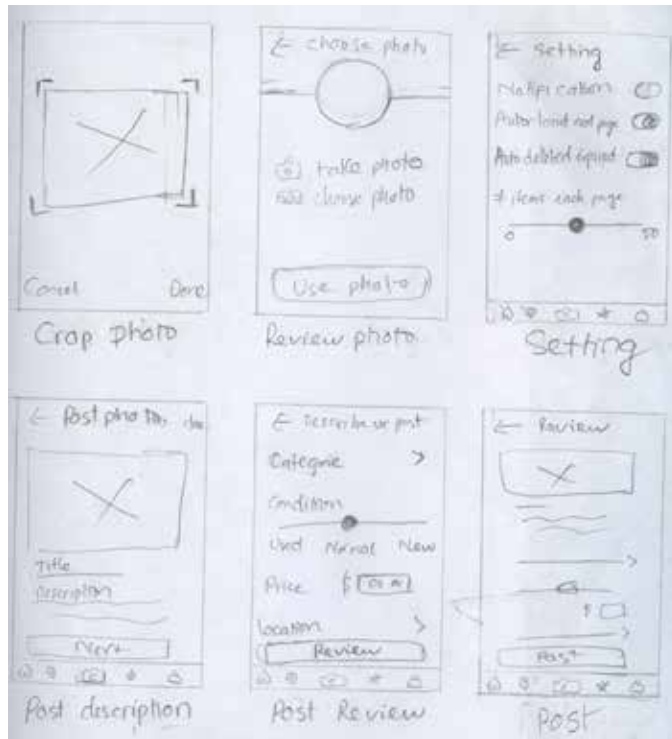 Cancel Done
Crop photo
← choose photo
take photo
choose photo
Use photo
Review photo
← Setting
Notification
Auto load next page
Auto deleted expired
# items each page
0 50
Setting
← Post photo,
Title
Description
Next
Post description
← Describe ur post
Categorie >
Condition
Used Normal New
Price $
location >
Review
Post Review
← Review
>
$
>
Post
Post